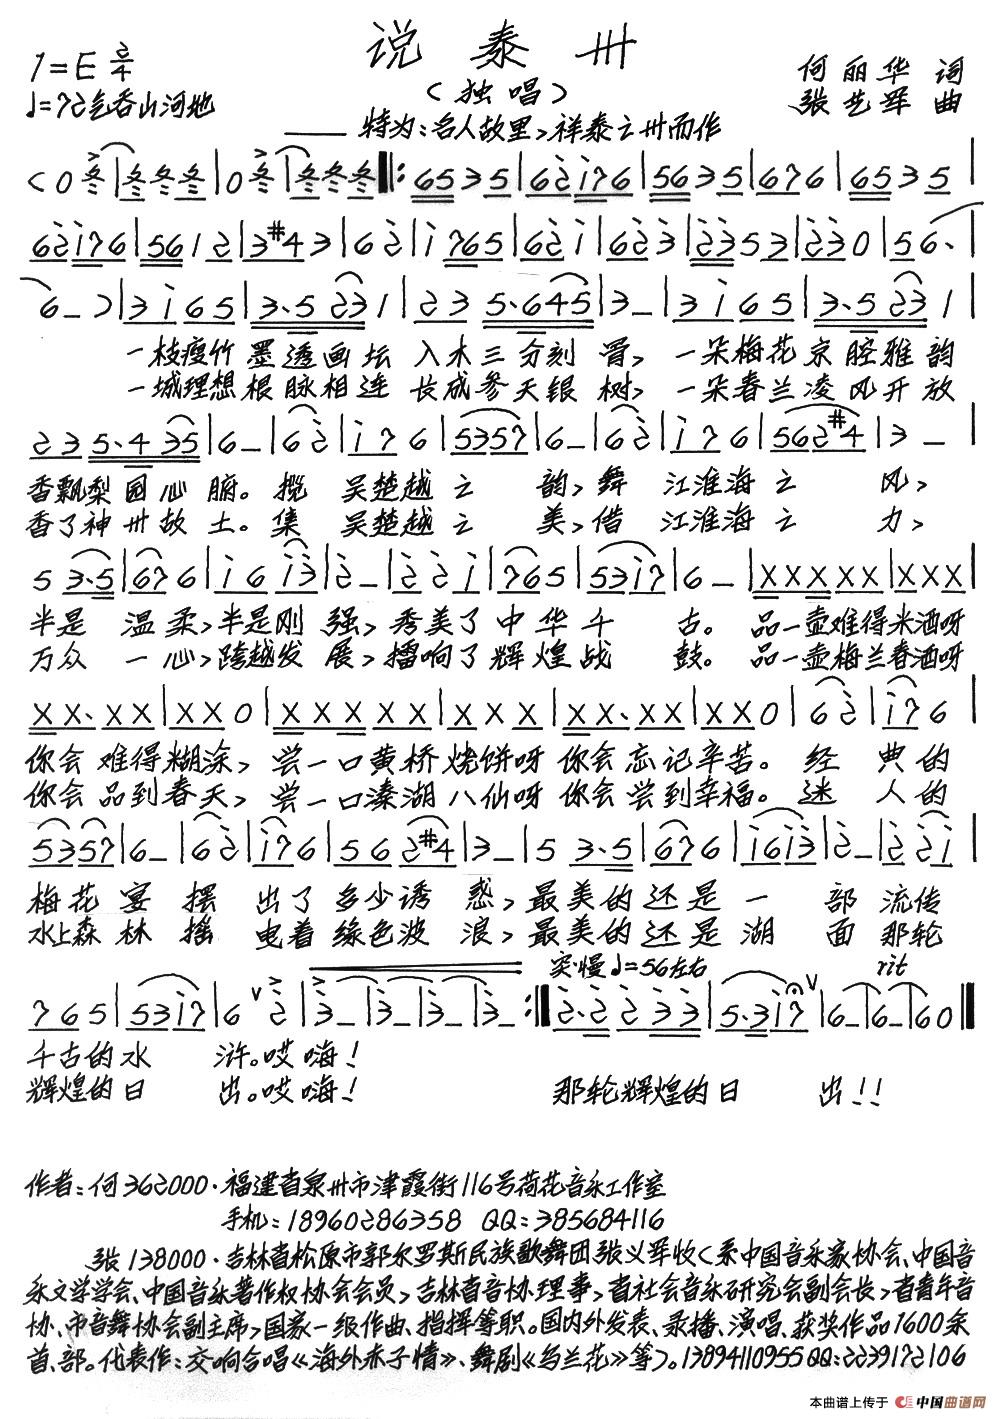 说泰州
1=E 2/4
(独唱)
何丽华 词
♩=72气吞山河地
张艺军 曲
—— 特为:名人故里,祥泰之州而作
一枝瘦竹墨透画坛 入木三分刻骨, 一朵梅花京腔雅韵
一城理想根脉相连 长成参天银树, 一朵春兰凌风开放
香飘梨园心腑。揽 吴楚越之 韵,舞 江淮海之 风,
香了神州故土。集 吴楚越之 美,借 江淮海之 力,
半是 温柔,半是刚强,秀美了中华千 古。品一壶难得米酒呀
万众 一心,跨越发展,擂响了辉煌战 鼓。品一壶梅兰春酒呀
你会 难得糊涂, 尝一口黄桥烧饼呀 你会忘记辛苦。经 典的
你会 品到春天, 尝一口溱湖八仙呀 你会尝到幸福。迷 人的
梅花宴 摆 出了多少诱 惑,最美的还是一 部 流传
水上森林 摇 曳着绿色波 浪,最美的还是湖 面 那轮
突慢♩=56左右 rit
千古的水 浒。哎嗨!
辉煌的日 出。哎嗨! 那轮辉煌的日 出!!
作者:何362000·福建省泉州市津霞街116号荷花音乐工作室
手机:18960286358 QQ:385684116
张138000·吉林省松原市郭尔罗斯民族歌舞团张义军收(系中国音乐家协会、中国音
乐文学学会、中国音乐著作权协会会员,吉林省音协理事,省社会音乐研究会副会长,省青年音
协、市音舞协会副主席,国家一级作曲、指挥等职。国内外发表、录播、演唱、获奖作品1600余
首、部。代表作:交响合唱《海外赤子情》、舞剧《乌兰花》等)。13894110955 QQ:2239172106
本曲谱上传于 中国曲谱网